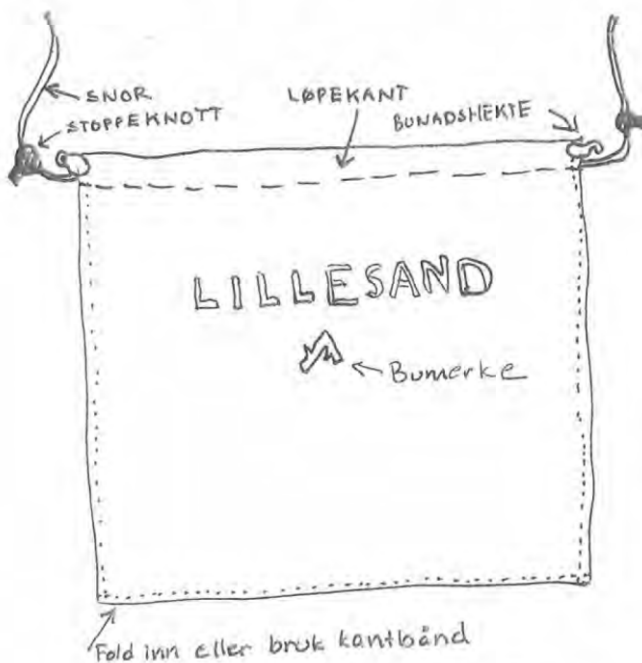 SNOR
STOPPEKNOTT
LØPEKANT
BUNADSHEKTE
LILLESAND
Bumerke
Fold inn eller bruk kantbånd